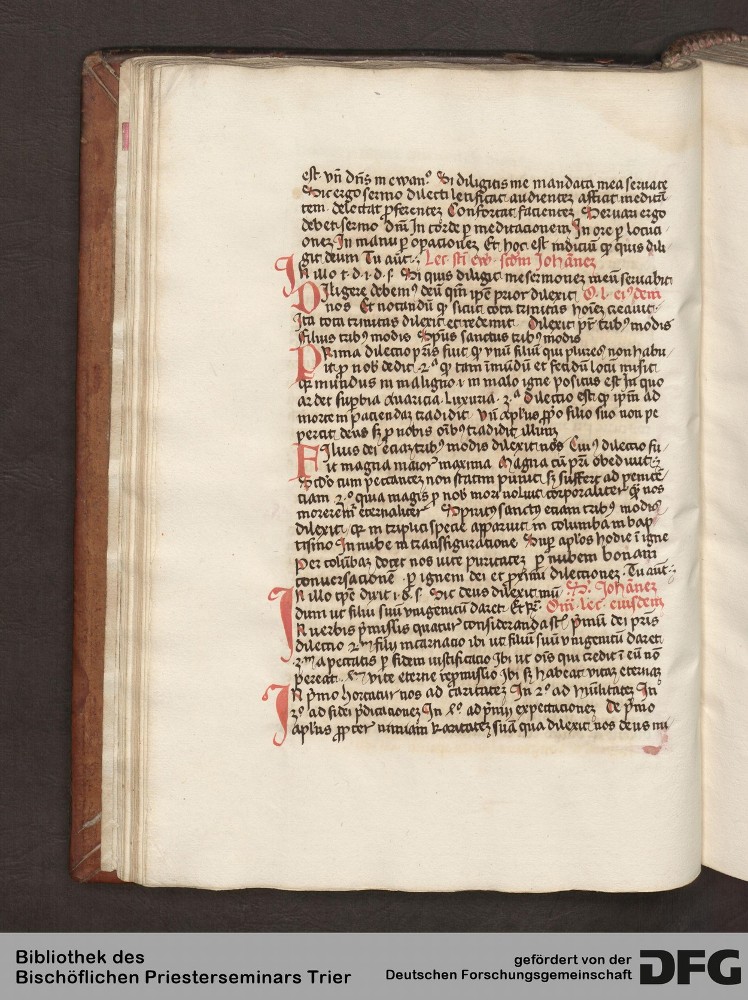 est. vñ dñs in ewanᵒ. Si diligitis me mandata mea seruate
Sic ergo sermo dilecti letificat audientez afficit
tem. delectat ꝓferentez Confortat facientez Seruari ergo
debet sermo dñi In corde ꝑ meditacionem In ore ꝑ locuci
onez In manu ꝑ operacionez Et hoc est indiciũ ꝙ quis dili
git deum Tu aũt. Lec sci ew. scdm Johãnez
In illo t. d. i. d. s. Si quis diligit me sermonez meũ seruabit
Diligere debemꝰ deũ qm̃ ipẽ prior dilexit O. l. eiꝰdem
nos Et notandũ ꝙ sicut tota trinitas hoĩez creauit
Ita tota trinitas dilexit et redemit Dilexit pr̃ tribꝰ modis
Filius tribꝰ modis Spũs sanctus tribꝰ modis
Prima dilectio pr̃is fuit ꝙ vnũ filiũ qui plures non habu
it ꝓ nob dedit. 2ᵃ ꝙ tam ĩmũdũ et fetidũ locũ misit
qr mundus in maligno. i. in malo igne positus est In quo
ardet supbia Auaricia Luxuria. 3ᵃ Dilectio est ꝙ ip̃m ad
mortem paciendaz tradidit vñ apl̃us ꝓpo filio suo non pe
percit deus sꝫ ꝓ nobis oĩbꝰ tradidit illum
Filius dei eciaz tribꝰ modis dilexit nos Cuiꝰ dilectio fu
it magna maior maxima Magna cũ pr̃i obediuit
Scdo cum peccantez non statim puniit sꝫ suffert ad penitẽ
ciam 3ᵒ quia magis ꝓ nob mori voluit corporaliter qᷓ nos
morerem̃ eternaliter Spiritꝰ sanctꝰ eciam tribꝰ modis
dilexit qr in triplici specie apparuit in columba in bap
tismo In nube in transfiguracione Sup apl̃os hodie ĩ igne
Per colũbaz docet nos viuere puritatez ꝑ nubem bonam
conuersacionẽ. ꝑ ignem dei et ꝓximi dilectionez. Tu aũt
In illo tp̃e dixit i. d. s. Sic deus dilexit mũ Johãnez
dum ut filiũ suũ vnigenitũ daret Et R̃ Om̃. Lec. eiusdem
In verbis p̃missis quatuor consideranda st̃ p̃mũ dei pr̃is
dilectio 2ᵐ filij incarnacio ibi ut filiũ suũ vnigenitũ daret
3ᵐ a peccatis ꝑ fidem iustificacio Ibi ut oĩs qui credit ĩ eũ nõ
pereat. 4ᵐ vite eterne repromissio Ibi sꝫ habeat vitaz eternaz
In p̃mo hortatur nos ad caritatez In 2ᵒ ad hũilitatez In
3ᵒ ad fidei p̃dicacionez In 4ᵒ ad p̃mij expectacionez De p̃mo
apl̃us ꝓpter nimiam karitatez suã qua dilexit nos deus mi
Bibliothek des
Bischöflichen Priesterseminars Trier
gefördert von der
Deutschen Forschungsgemeinschaft
DFG